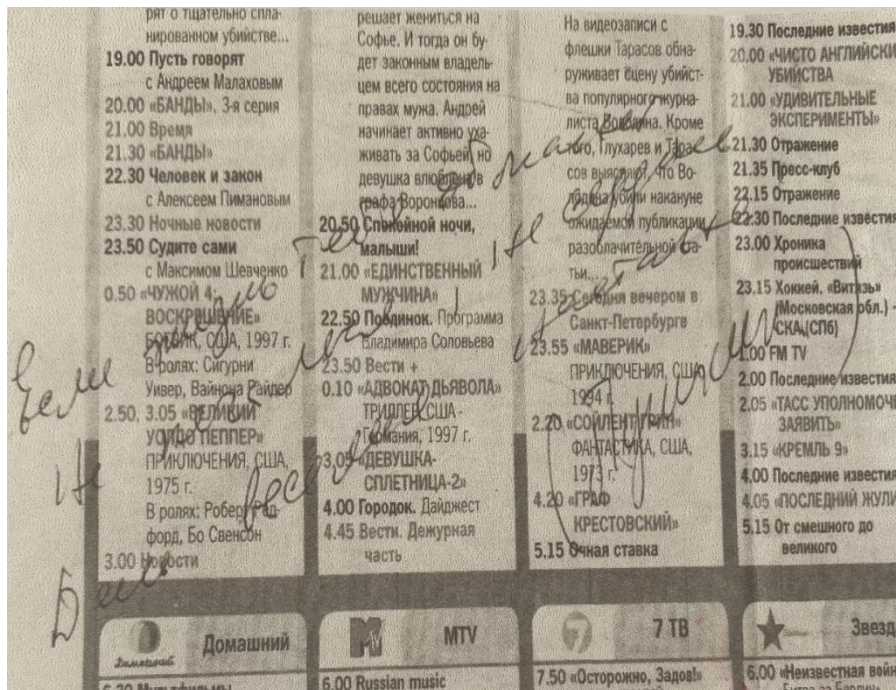 рят о тщательно спла-
нированном убийстве...
19.00 Пусть говорят
с Андреем Малаховым
20.00 «БАНДЫ». 3-я серия
21.00 Время
21.30 «БАНДЫ»
22.30 Человек и закон
с Алексеем Пимановым
23.30 Ночные новости
23.50 Судите сами
с Максимом Шевченко
0.50 «ЧУЖОЙ 4:
ВОСКРЕШЕНИЕ»
БОЕВИК, США, 1997 г.
В ролях: Сигурни
Уивер, Вайнона Райдер
2.50, 3.05 «ВЕЛИКИЙ
УОЛДО ПЕППЕР»
ПРИКЛЮЧЕНИЯ, США,
1975 г.
В ролях: Роберт Ред-
форд, Бо Свенсон
3.00 Новости
решает жениться на
Софье. И тогда он бу-
дет законным владель-
цем всего состояния на
правах мужа. Андрей
начинает активно уха-
живать за Софьей, но
девушка влюблена в
графа Воронцова...
20.50 Спокойной ночи,
малыши!
21.00 «ЕДИНСТВЕННЫЙ
МУЖЧИНА»
22.50 Поединок. Программа
Владимира Соловьева
23.50 Вести +
0.10 «АДВОКАТ ДЬЯВОЛА»
ТРИЛЛЕР, США -
Германия, 1997 г.
3.05 «ДЕВУШКА-
СПЛЕТНИЦА-2»
4.00 Городок. Дайджест
4.45 Вести. Дежурная
часть
На видеозаписи с
флешки Тарасов обна-
руживает сцену убийст-
ва популярного журна-
листа Володина. Кроме
того, Глухарев и Тара-
сов выясняют, что Во-
лодина убили накануне
ожидаемой публикации
разоблачительной ста-
тьи...
23.35 Сегодня вечером в
Санкт-Петербурге
23.55 «МАВЕРИК»
ПРИКЛЮЧЕНИЯ, США,
1994 г.
2.20 «СОЙЛЕНТ ГРИН»
ФАНТАСТИКА, США,
1973 г.
4.20 «ГРАФ
КРЕСТОВСКИЙ»
5.15 Очная ставка
19.30 Последние известия
20.00 «ЧИСТО АНГЛИЙСКИ
УБИЙСТВА
21.00 «УДИВИТЕЛЬНЫЕ
ЭКСПЕРИМЕНТЫ»
21.30 Отражение
21.35 Пресс-клуб
22.15 Отражение
22.30 Последние известия
23.00 Хроника
происшествий
23.15 Хоккей. «Витязь»
(Московская обл.) -
СКА (СПб)
1.00 FM TV
2.00 Последние известия
2.05 «ТАСС УПОЛНОМОЧЕ
ЗАЯВИТЬ»
3.15 «КРЕМЛЬ 9»
4.00 Последние известия
4.05 «ПОСЛЕДНИЙ ЖУЛИ
5.15 От смешного до
великого
Если жизнь тебя обманет
Не печалься, не сердись
(Пушкин)
Домашний
Домашний
MTV
7 ТВ
Звезд
6.00 Russian music
7.50 «Осторожно, Задов!»
6.00 «Неизвестная войн